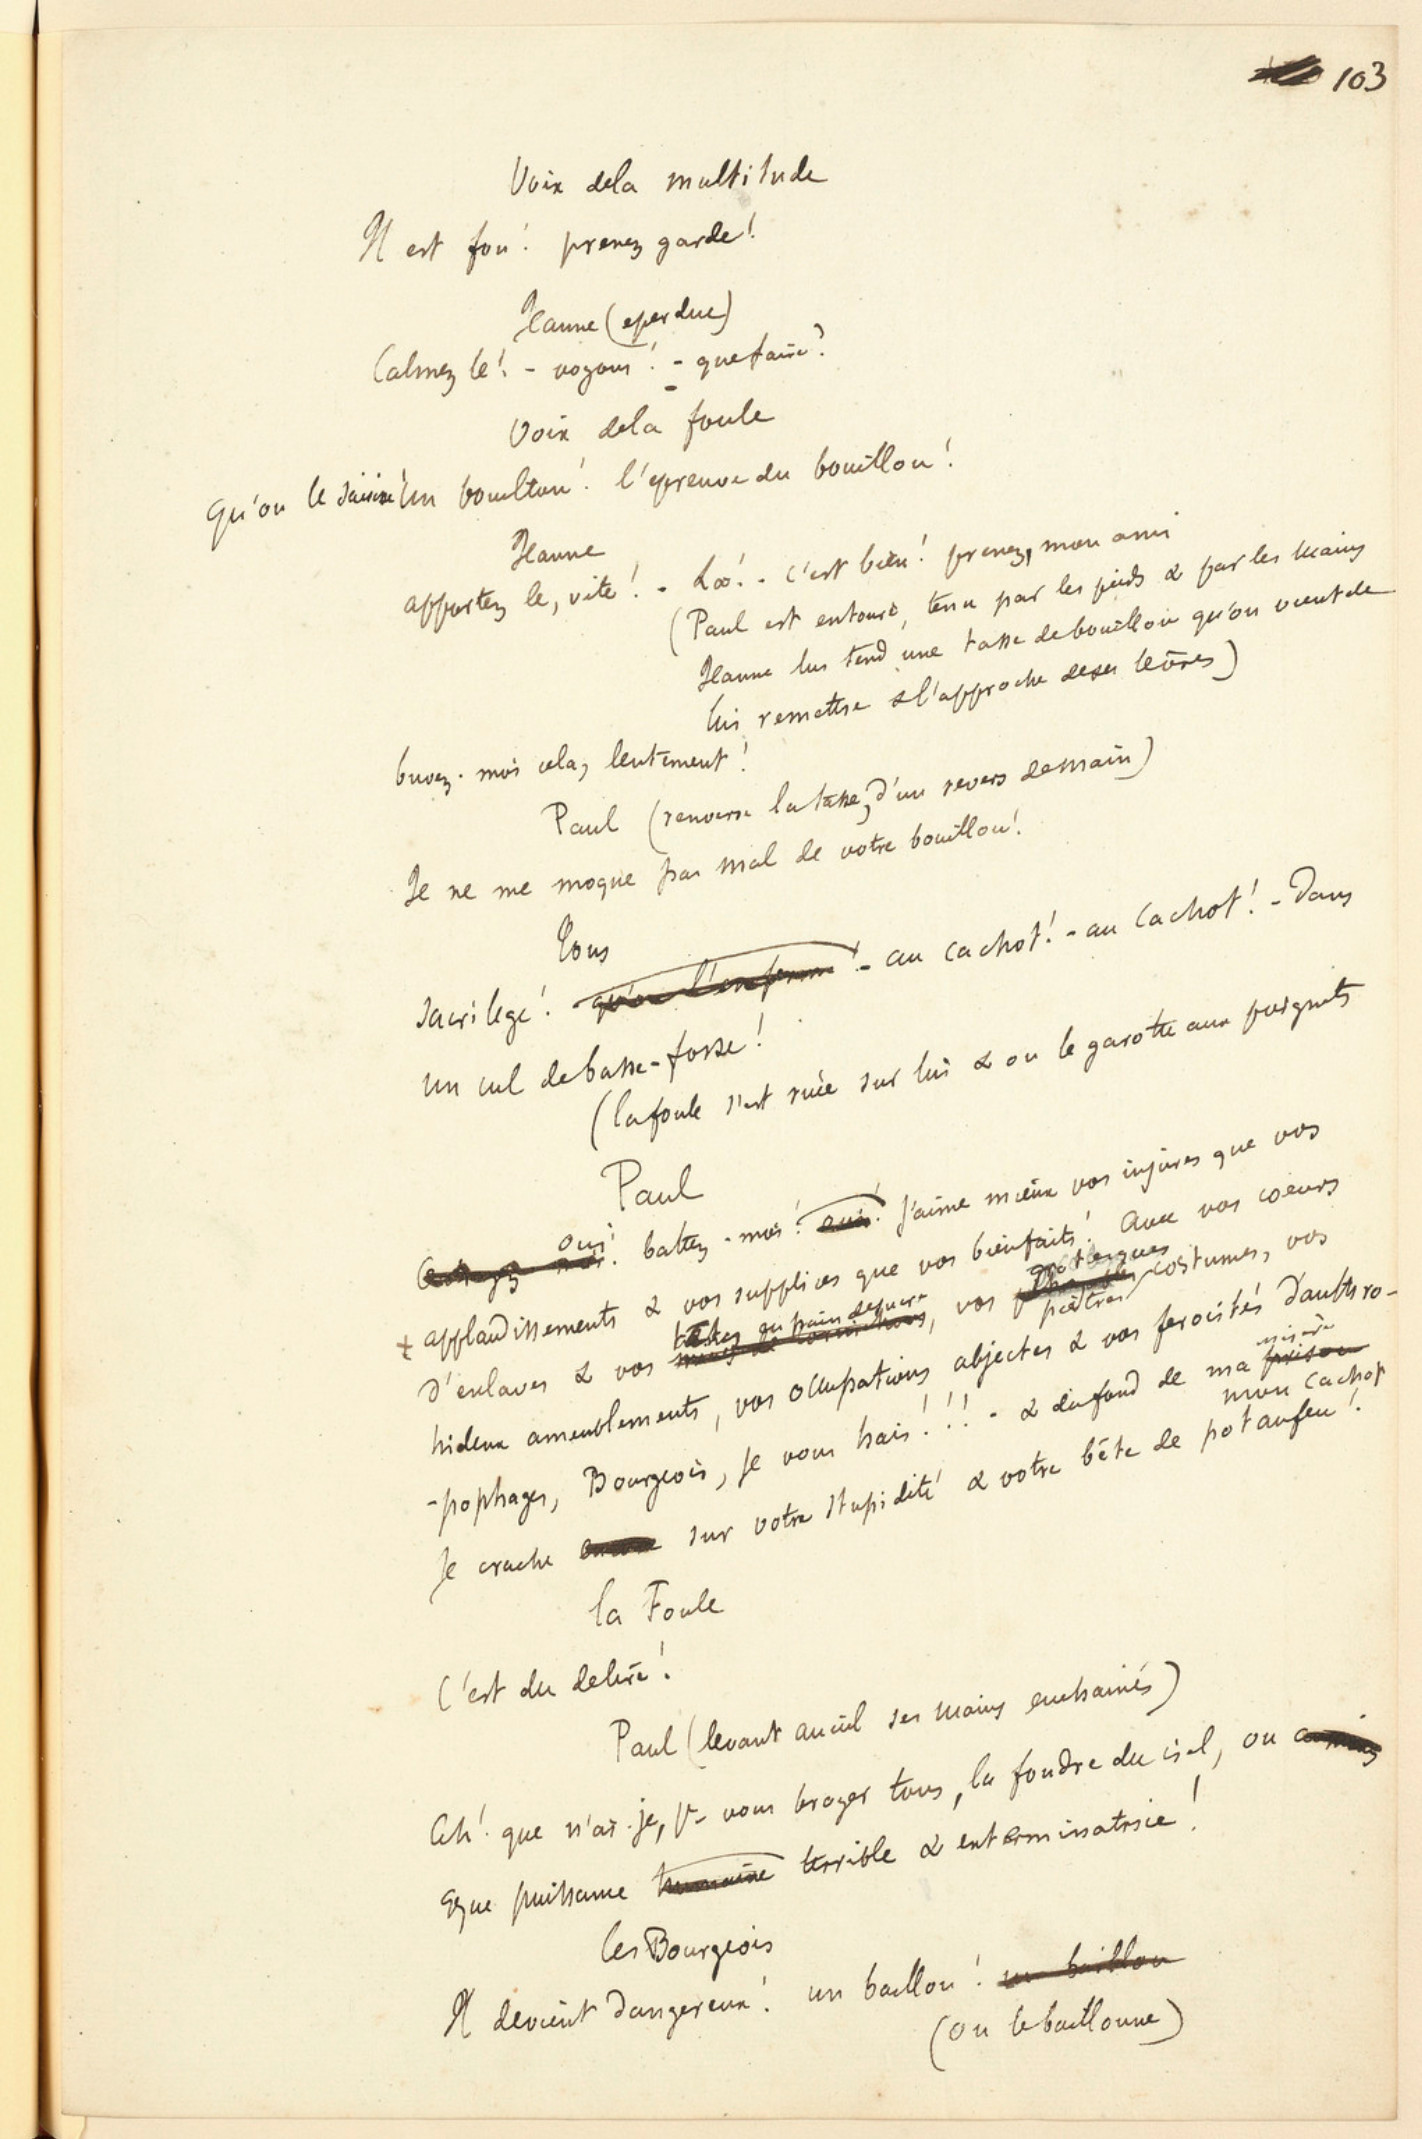 103
Voix de la multitude
Il est fou! prenez garde!
Jeanne (eperdue)
Calmez le! - voyons! - que faire?
Voix de la foule
Qu'on le saisisse! Un bouillon! l'épreuve du bouillon!
Jeanne
apportez le, vite! - là! - c'est bien! prenez, mon ami
(Paul est entouré, tenu par les pieds & par les mains
Jeanne lui tend une tasse de bouillon qu'on vient de
lui remettre & l'approche de ses lèvres)
buvez-moi cela, lentement!
Paul (renverse la tasse, d'un revers de main)
Je ne me moque pas mal de votre bouillon!
Tous
Sacrilege! - qu'on l'enferme! - au cachot! - au cachot! - Dans
un cul de basse-fosse!
(la foule s'est ruée sur lui & on le garotte aux poignets
Paul
oui! battez-moi! oui! j'aime mieux vos injures que vos
applaudissements & vos supplices que vos bienfaits! Avec vos coeurs
grotesques
d'enlaves & vos têtes en pain de sucre, vos piètres costumes, vos
hideux ameublements, vos occupations abjectes & vos ferocités d'anthro-
-pophages, Bourgeois, je vous hais!!! - & du fond de ma prison
misère
mon cachot
Je crache sur votre stupidité & votre bête de pot au feu!
la Foule
C'est du delire!
Paul (levant au ciel ses mains enchainés)
Ah! que n'ai-je, pr vous broyer tous, la foudre du ciel, ou
qque puissance humaine terrible & exterminatrice!
les Bourgeois
Il devient dangereux! un baillon! un baillon
(on le baillonne)